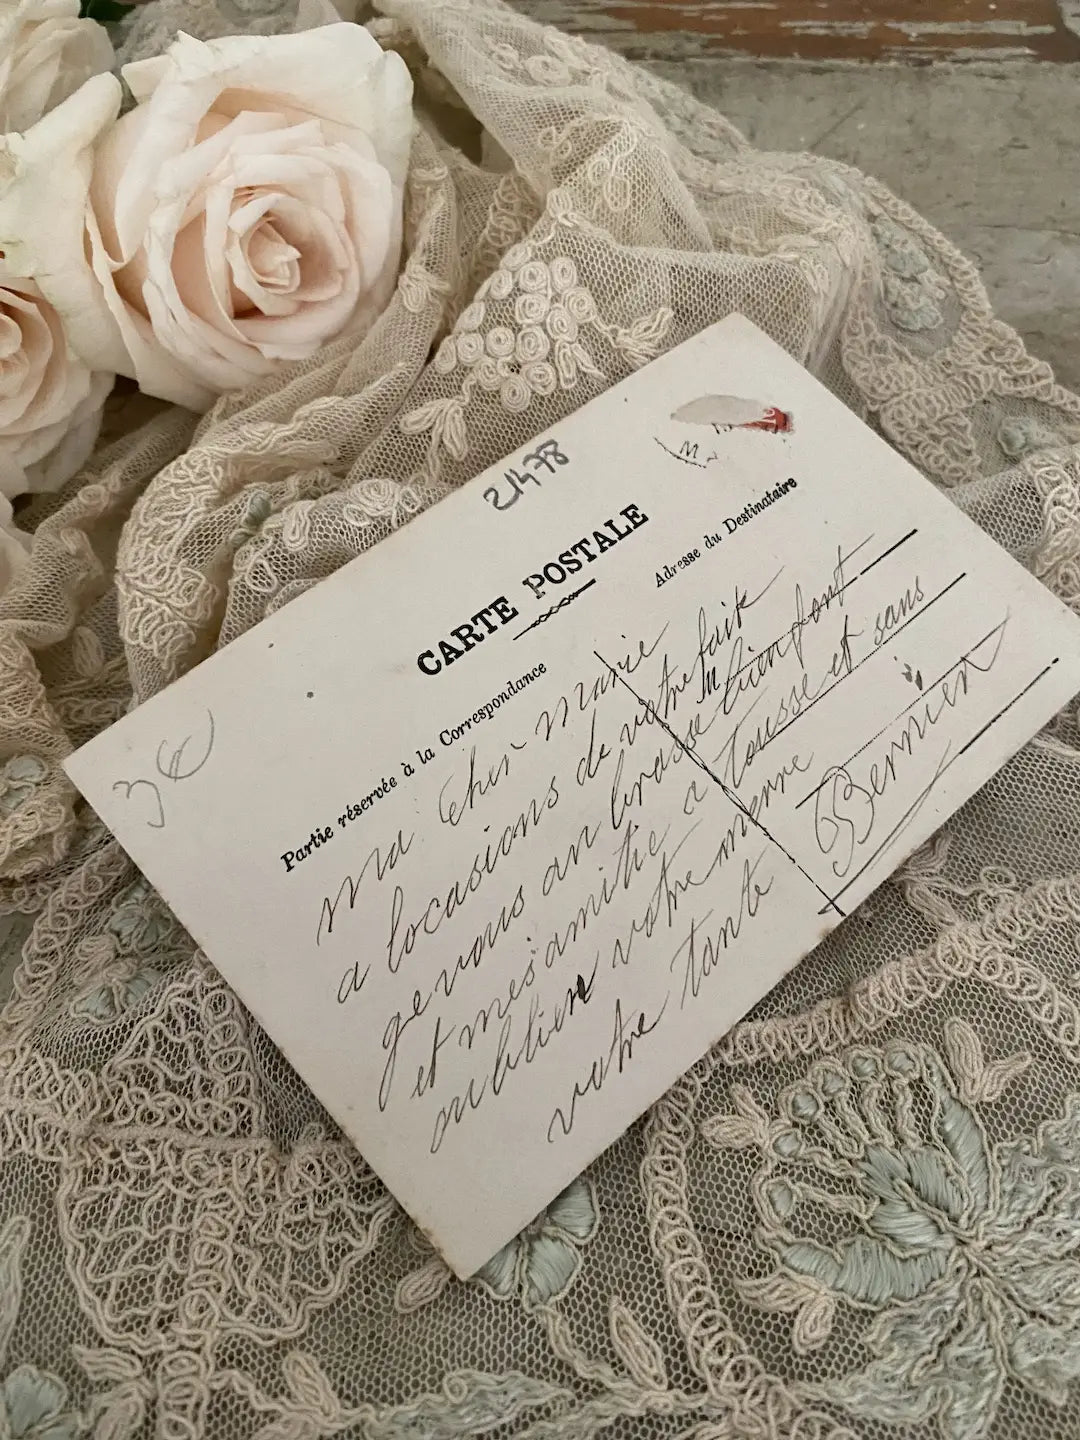 21478
CARTE POSTALE
Partie réservée à la Correspondance
Adresse du Destinataire
3€
ma Cher marie
a locasions de votre faite
ge vous an brasse bien font
et mes amitie a tousse et sans
oublier votre merre
votre tante Bernier